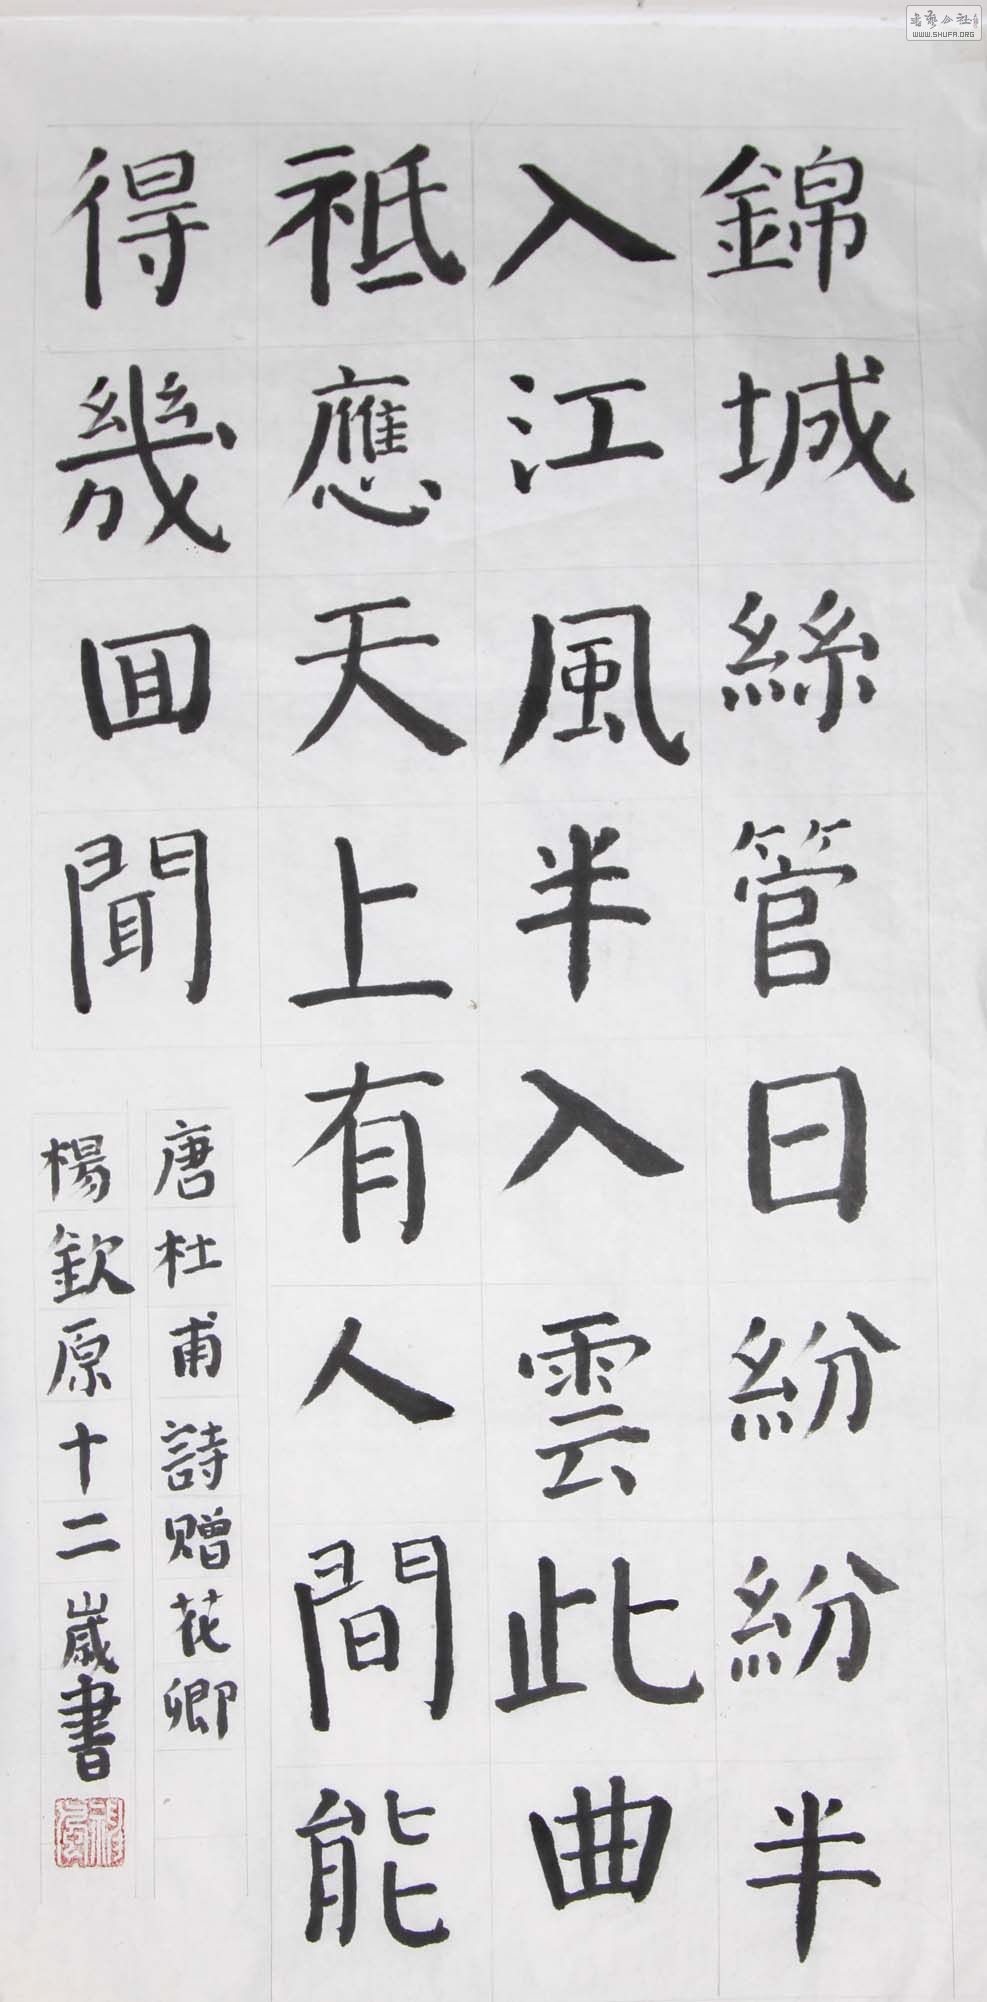 錦城絲管日紛紛半
入江風半入雲此曲
祇應天上有人間能
得幾回聞
唐杜甫詩贈花卿
楊欽原十二歲書
書藝公社
WWW.SHUFA.ORG